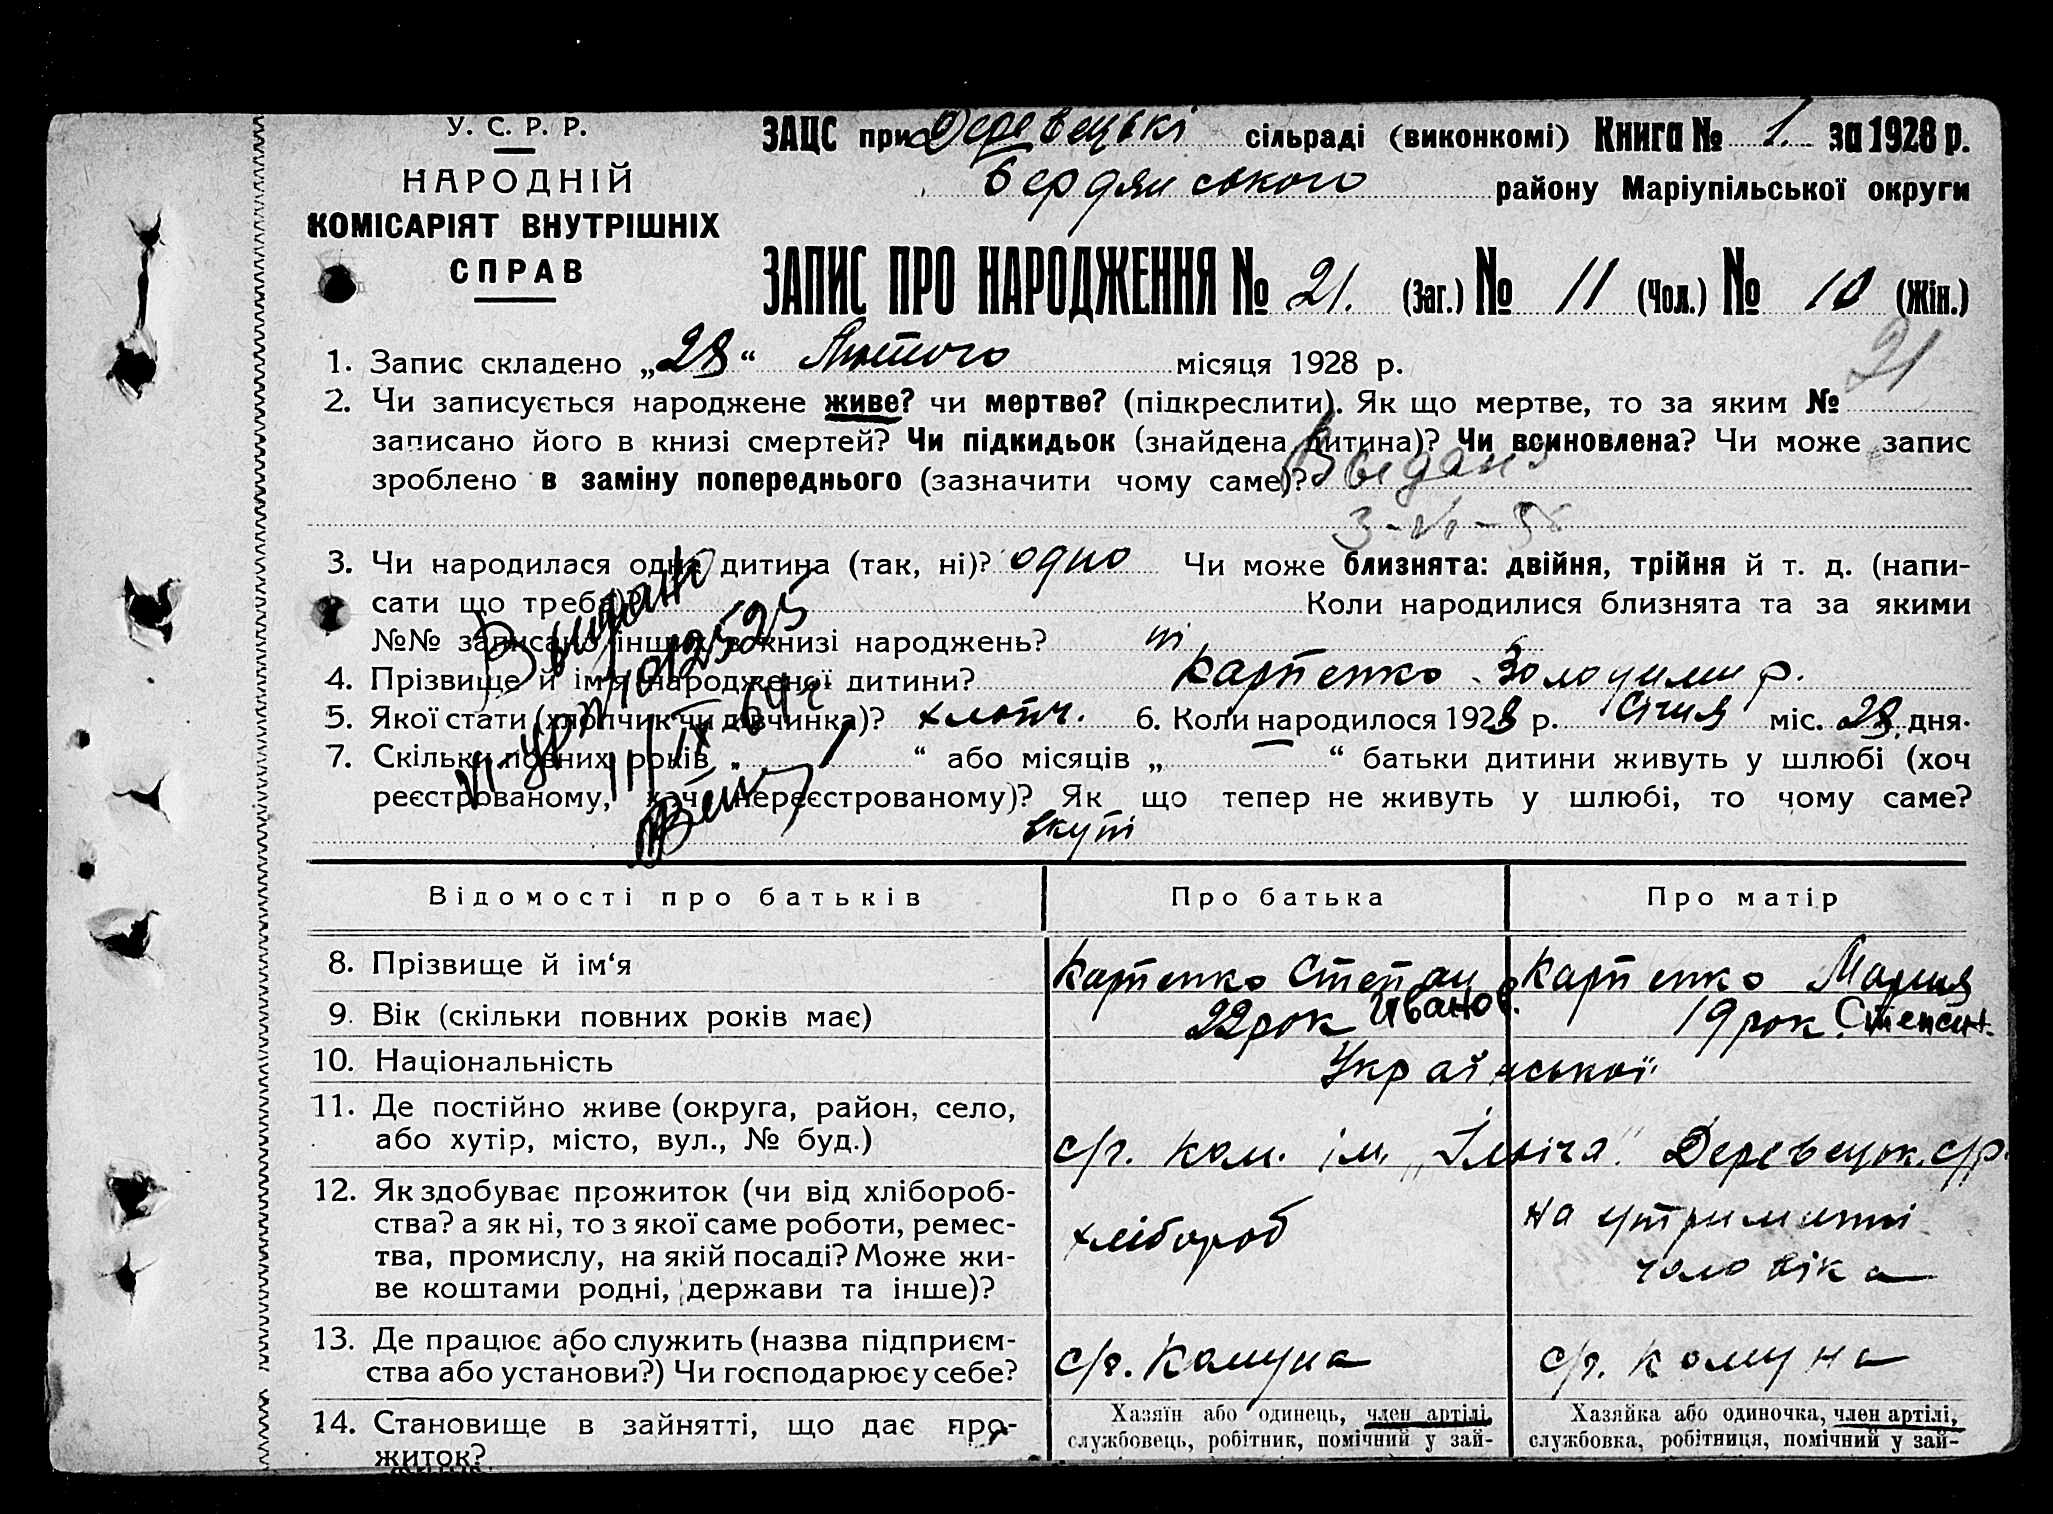 У. С. Р. Р.
НАРОДНІЙ
КОМІСАРІЯТ ВНУТРІШНІХ
СПРАВ
ЗАЦС при Деревецькі сільраді (виконкомі) Книга № 1. за 1928 р.
Бердянського району Маріупільської округи
ЗАПИС ПРО НАРОДЖЕННЯ № 21. (Заг.) № 11 (Чол.) № 10 (Жін.)
21
1. Запис складено „28“ Лютого місяця 1928 р.
2. Чи записується народжене живе? чи мертве? (підкреслити). Як що мертве, то за яким №
записано його в книзі смертей? Чи підкидьок (знайдена дитина)? Чи всиновлена? Чи може запис
зроблено в заміну попереднього (зазначити чому саме)? Выдано
3. Чи народилася одна дитина (так, ні)? одно Чи може близнята: двійня, трійня й т. д. (напи-
сати що треба) Коли народилися близнята та за якими
№№ записано інших в книзі народжень? ні
4. Прізвище й ім'я народженої дитини? Карпенко Володимир.
5. Якої стати (хлопчик чи дівчинка)? хлопч. 6. Коли народилося 1928 р. Січня міс. 28, дня.
7. Скільки повних років „ “ або місяців „ — “ батьки дитини живуть у шлюбі (хоч
реєстрованому, хоч нереєстрованому)? Як що тепер не живуть у шлюбі, то чому саме?
вкупі
Выдано
Відомості про батьків Про батька Про матір
8. Прізвище й ім‘я Карпенко Степан Иванов. Карпенко Мария Степан.
9. Вік (скільки повних років має) 22 рок 19 рок
10. Національність Української
11. Де постійно живе (округа, район, село,
або хутір, місто, вул., № буд.) с/г. ком. ім. „Ілліча" Деревецьк. с/р.
12. Як здобуває прожиток (чи від хлібороб-
ства? а як ні, то з якої саме роботи, ремес-
тва, промислу, на якій посаді? Може жи-
ве коштами родні, держави та інше)?
хлібороб
на утриманні
чоловіка
13. Де працює або служить (назва підприєм-
ства або установи?) Чи господарює у себе? с/г. Комуна с/г. комуна
14. Становище в зайнятті, що дає про-
житок?
Хазяїн або одинець, член артілі,
службовець, робітник, помічний у зай-
Хазяйка або одиночка, член артілі,
службовка, робітниця, помічний у зай-